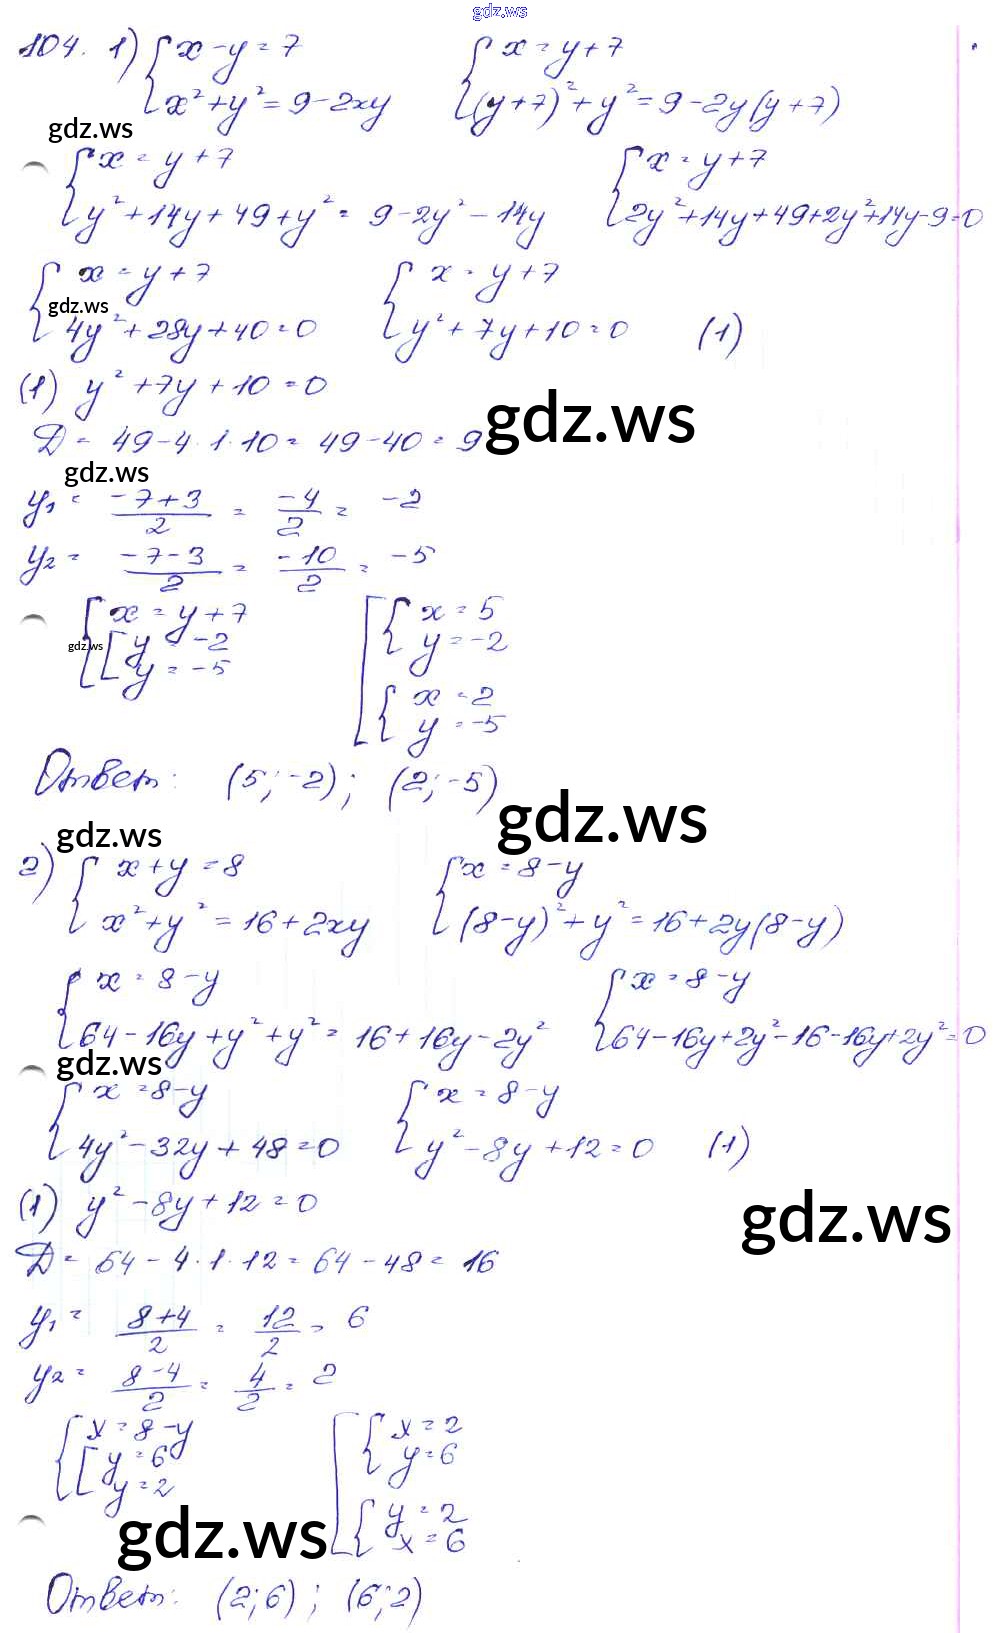 gdz.ws
104. 1) { x - y = 7 { x = y + 7
x² + y² = 9 - 2xy (y + 7)² + y² = 9 - 2y(y + 7)
gdz.ws
{ x = y + 7 { x = y + 7
y² + 14y + 49 + y² = 9 - 2y² - 14y 2y² + 14y + 49 + 2y² + 14y - 9 = 0
{ x = y + 7 { x = y + 7
gdz.ws
4y² + 28y + 40 = 0 y² + 7y + 10 = 0 (1)
(1) y² + 7y + 10 = 0
gdz.ws
D = 49 - 4 · 1 · 10 = 49 - 40 = 9
gdz.ws
y₁ = (-7 + 3)/2 = -4/2 = -2
y₂ = (-7 - 3)/2 = -10/2 = -5
{ x = y + 7 [ { x = 5
gdz.ws
[ y = -2 y = -2
y = -5 { x = 2
y = -5
Ответ: (5; -2); (2; -5)
gdz.ws
gdz.ws
2) { x + y = 8 { x = 8 - y
x² + y² = 16 + 2xy (8 - y)² + y² = 16 + 2y(8 - y)
{ x = 8 - y { x = 8 - y
64 - 16y + y² + y² = 16 + 16y - 2y² 64 - 16y + 2y² - 16 - 16y + 2y² = 0
gdz.ws
{ x = 8 - y { x = 8 - y
4y² - 32y + 48 = 0 y² - 8y + 12 = 0 (1)
(1) y² - 8y + 12 = 0
gdz.ws
D = 64 - 4 · 1 · 12 = 64 - 48 = 16
y₁ = (8 + 4)/2 = 12/2 = 6
y₂ = (8 - 4)/2 = 4/2 = 2
{ x = 8 - y [ { x = 2
[ y = 6 y = 6
y = 2 { y = 2
x = 6
gdz.ws
Ответ: (2; 6); (6; 2)